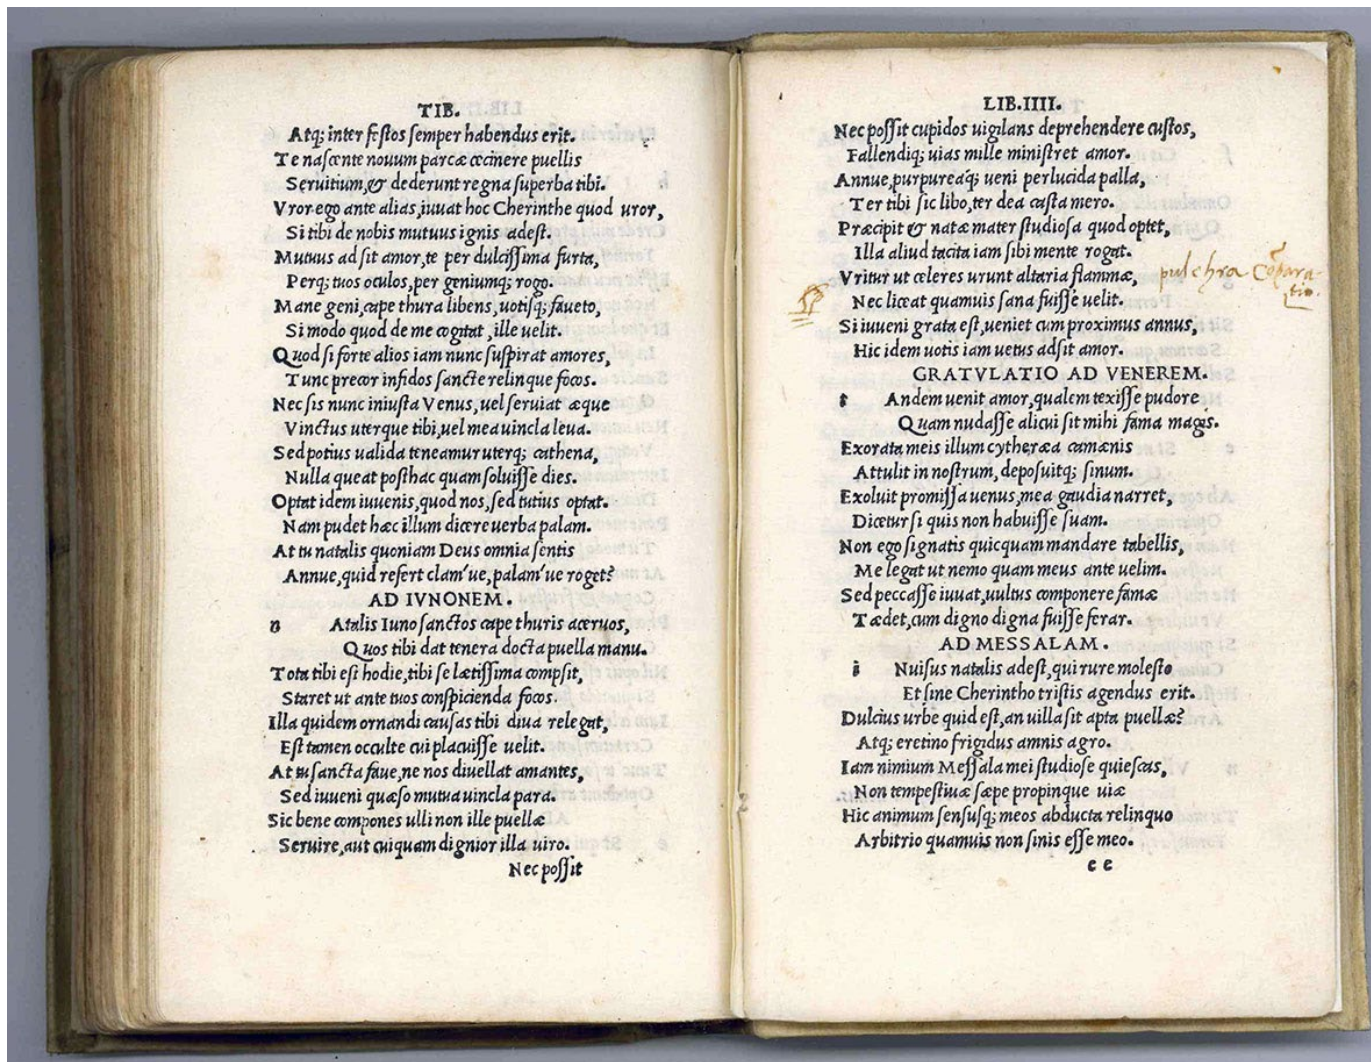 TIB.
Atq; inter festos semper habendus erit.
Te nascente nouum parcæ cecinere puellis
Seruitium, & dederunt regna superba tibi.
Vror ego ante alias, iuuat hoc Cherinthe quod uror,
Si tibi de nobis mutuus ignis adest.
Mutuus adsit amor, te per dulcissima furta,
Perq; tuos oculos, per geniumq; rogo.
Mane geni, cape thura libens, uotisq; faueto,
Si modo quod de me cogitat, ille uelit.
Quod si forte alios iam nunc suspirat amores,
Tunc precor infidos sancte relinque focos.
Nec sis nunc iniusta Venus, uel seruiat æque
Vinctus uterque tibi, uel mea uincla leua.
Sed potius ualida teneamur uterq; cathena,
Nulla queat posthac quam soluisse dies.
Optat idem iuuenis, quod nos, sed tutius optat.
Nam pudet hæc illum dicere uerba palam.
At tu natalis quoniam Deus omnia sentis
Annue, quid refert clam'ue, palam'ue roget?
AD IVNONEM.
n Atalis Iuno sanctos cape thuris aceruos,
Quos tibi dat tenera docta puella manu.
Tota tibi est hodie, tibi se lætissima compsit,
Staret ut ante tuos conspicienda focos.
Illa quidem ornandi causas tibi diua relegat,
Est tamen occulte cui placuisse uelit.
At tu sancta faue, ne nos diuellat amantes,
Sed iuueni quæso mutua uincla para.
Sic bene compones ulli non ille puellæ
Seruire, aut cuiquam dignior illa uiro.
Nec possit
LIB.IIII.
Nec possit cupidos uigilans deprehendere custos,
Fallendiq; uias mille ministret amor.
Annue, purpurea'q; ueni perlucida palla,
Ter tibi sic libo, ter dea casta mero.
Præcipit & natæ mater studiosa quod optet,
Illa aliud tacita iam sibi mente rogat.
Vritur ut celeres urunt altaria flammæ,
pulchra Cōpara-
tio.
Nec liceat quamuis sana fuisse uelit.
Si iuueni grata est, ueniet cum proximus annus,
Hic idem uotis iam uetus adsit amor.
GRATVLATIO AD VENEREM.
t Andem uenit amor, qualem texisse pudore
Quam nudasse alicui sit mihi fama magis.
Exorata meis illum cytheræa camœnis
Attulit in nostrum, deposuitq; sinum.
Exoluit promissa uenus, mea gaudia narret,
Dicetur si quis non habuisse suam.
Non ego signatis quicquam mandare tabellis,
Me legat ut nemo quam meus ante uelim.
Sed peccasse iuuat, uultus componere famæ
Tædet, cum digno digna fuisse ferar.
AD MESSALAM.
i Nuisus natalis adest, qui rure molesto
Et sine Cherintho tristis agendus erit.
Dulcius urbe quid est, an uilla sit apta puellæ?
Atq; eretino frigidus amnis agro.
Iam nimium Messala mei studiose quiescas,
Non tempestiuæ sæpe propinque uiæ
Hic animum sensusq; meos abducta relinquo
Arbitrio quamuis non sinis esse meo.
e e